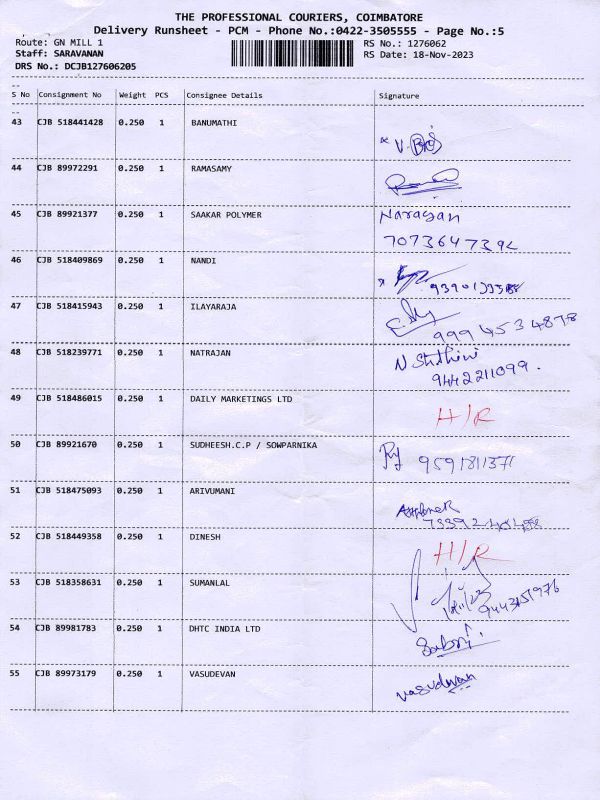 THE PROFESSIONAL COURIERS, COIMBATORE
Delivery Runsheet - PCM - Phone No.:0422-3505555 - Page No.:5
Route: GN MILL 1 RS No.: 1276062
Staff: SARAVANAN RS Date: 18-Nov-2023
DRS No.: DCJB127606205
--
S No Consignment No Weight PCS Consignee Details Signature
--
43 CJB 518441428 0.250 1 BANUMATHI
44 CJB 89972291 0.250 1 RAMASAMY
45 CJB 89921377 0.250 1 SAAKAR POLYMER Narayan
7073647392
46 CJB 518409869 0.250 1 NANDI
47 CJB 518415943 0.250 1 ILAYARAJA
9994534878
48 CJB 518239771 0.250 1 NATRAJAN
9442211099.
49 CJB 518486015 0.250 1 DAILY MARKETINGS LTD
H/R
50 CJB 89921670 0.250 1 SUDHEESH.C.P / SOWPARNIKA
9591811371
51 CJB 518475093 0.250 1 ARIVUMANI
52 CJB 518449358 0.250 1 DINESH
H/R
53 CJB 518358631 0.250 1 SUMANLAL
54 CJB 89981783 0.250 1 DHTC INDIA LTD
55 CJB 89973179 0.250 1 VASUDEVAN
vasudevan